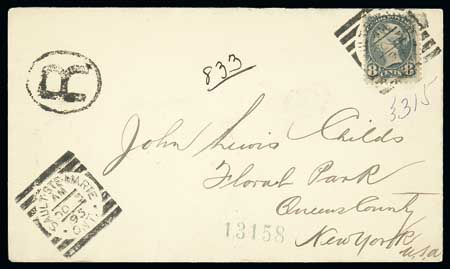 R
833
8 8
3315
John Lewis Childs
Floral Park
Queens County
New York
U.S.A
13158
SAULT STE. MARIE
AM
20
95
ONT.